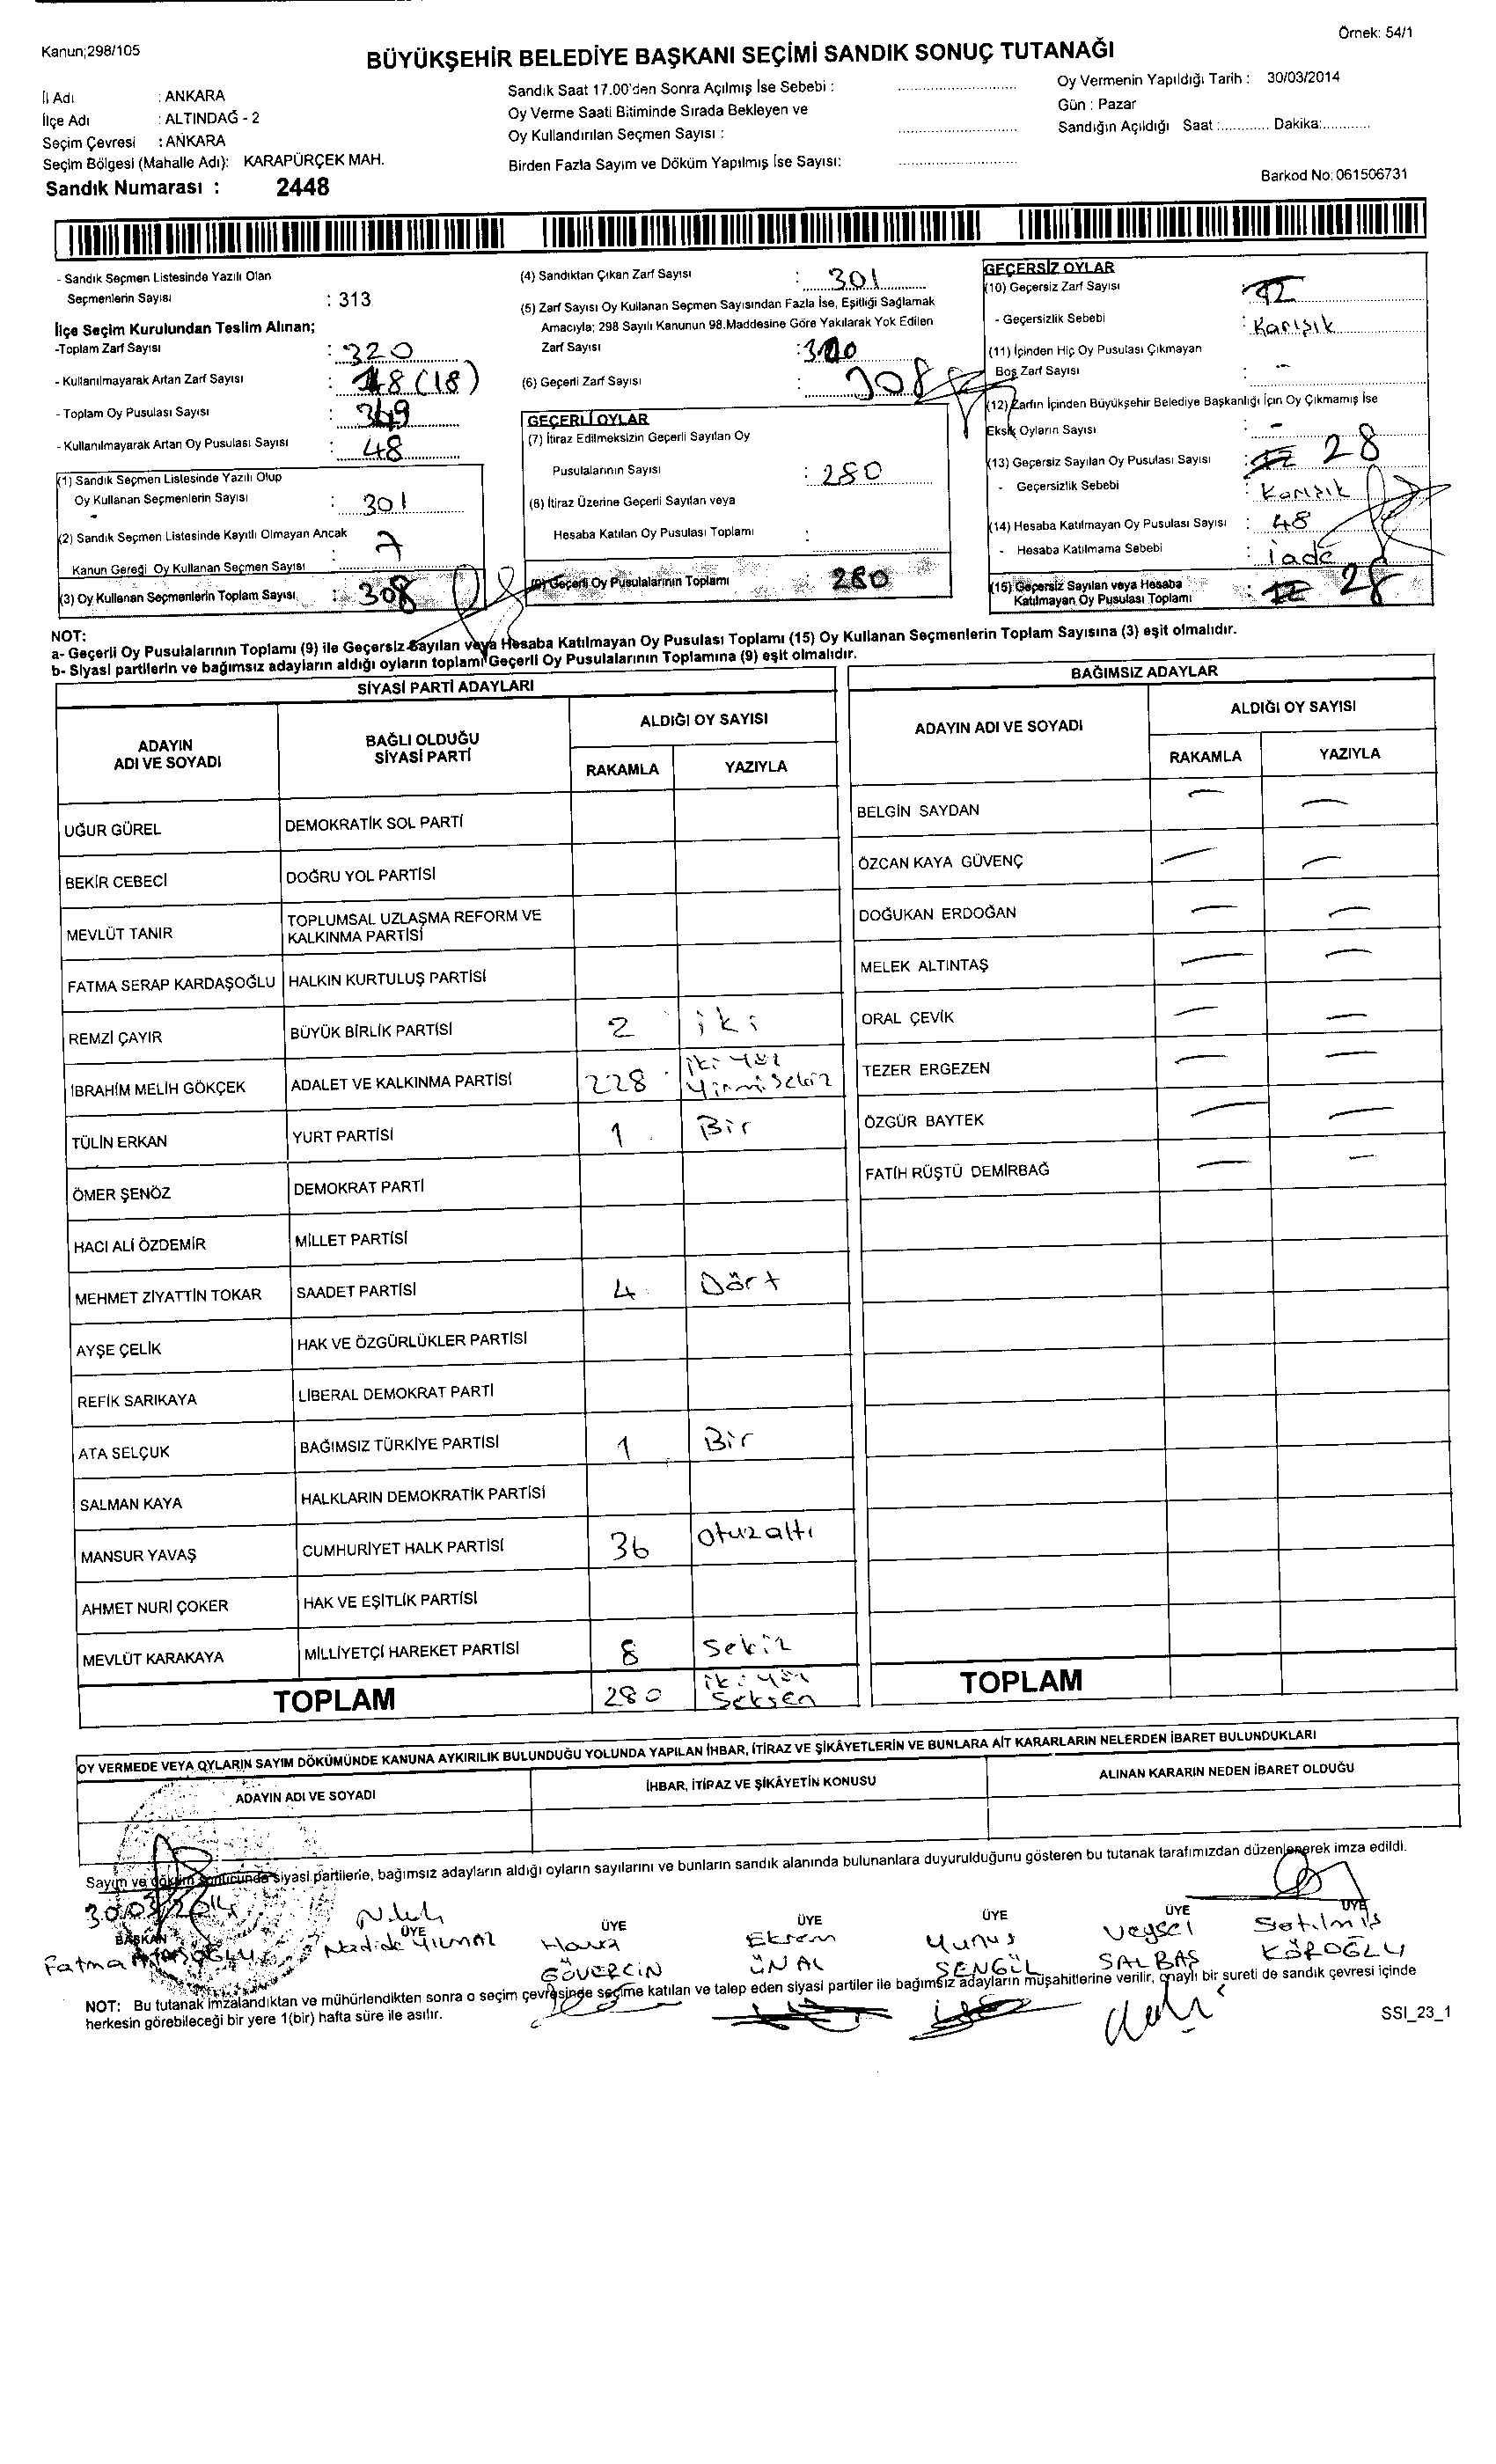 Örnek: 54/1
Kanun;298/105
BÜYÜKŞEHİR BELEDİYE BAŞKANI SEÇİMİ SANDIK SONUÇ TUTANAĞI
İl Adı : ANKARA
İlçe Adı : ALTINDAĞ - 2
Seçim Çevresi : ANKARA
Seçim Bölgesi (Mahalle Adı): KARAPÜRÇEK MAH.
Sandık Numarası : 2448
Sandık Saat 17.00'den Sonra Açılmış İse Sebebi :
Oy Verme Saati Bitiminde Sırada Bekleyen ve
Oy Kullandırılan Seçmen Sayısı :
Birden Fazla Sayım ve Döküm Yapılmış İse Sayısı:
Oy Vermenin Yapıldığı Tarih : 30/03/2014
Gün : Pazar
Sandığın Açıldığı Saat :............ Dakika:...........
Barkod No: 061506731
- Sandık Seçmen Listesinde Yazılı Olan
Seçmenlerin Sayısı : 313
İlçe Seçim Kurulundan Teslim Alınan;
-Toplam Zarf Sayısı : 320
- Kullanılmayarak Artan Zarf Sayısı : 18 (18)
- Toplam Oy Pusulası Sayısı : 349
- Kullanılmayarak Artan Oy Pusulası Sayısı : 48
(1) Sandık Seçmen Listesinde Yazılı Olup
Oy Kullanan Seçmenlerin Sayısı : 301
(2) Sandık Seçmen Listesinde Kayıtlı Olmayan Ancak
Kanun Gereği Oy Kullanan Seçmen Sayısı : 7
(3) Oy Kullanan Seçmenlerin Toplam Sayısı : 308
(4) Sandıktan Çıkan Zarf Sayısı : 301
(5) Zarf Sayısı Oy Kullanan Seçmen Sayısından Fazla İse, Eşitliği Sağlamak
Amacıyla; 298 Sayılı Kanunun 98.Maddesine Göre Yakılarak Yok Edilen
Zarf Sayısı :
(6) Geçerli Zarf Sayısı : 308
GEÇERLİ OYLAR
(7) İtiraz Edilmeksizin Geçerli Sayılan Oy
Pusulalarının Sayısı : 280
(8) İtiraz Üzerine Geçerli Sayılan veya
Hesaba Katılan Oy Pusulası Toplamı :
(9) Geçerli Oy Pusulalarının Toplamı : 280
GEÇERSİZ OYLAR
(10) Geçersiz Zarf Sayısı
- Geçersizlik Sebebi : Karışık
(11) İçinden Hiç Oy Pusulası Çıkmayan
Boş Zarf Sayısı : -
(12) Zarfın İçinden Büyükşehir Belediye Başkanlığı İçin Oy Çıkmamış İse
Eksik Oyların Sayısı : -
(13) Geçersiz Sayılan Oy Pusulası Sayısı : 28
- Geçersizlik Sebebi : Karışık
(14) Hesaba Katılmayan Oy Pusulası Sayısı : 48
- Hesaba Katılmama Sebebi : iade
(15) Geçersiz Sayılan veya Hesaba
Katılmayan Oy Pusulası Toplamı : 28
NOT:
a- Geçerli Oy Pusulalarının Toplamı (9) ile Geçersiz Sayılan veya Hesaba Katılmayan Oy Pusulası Toplamı (15) Oy Kullanan Seçmenlerin Toplam Sayısına (3) eşit olmalıdır.
b- Siyasi partilerin ve bağımsız adayların aldığı oyların toplamı Geçerli Oy Pusulalarının Toplamına (9) eşit olmalıdır.
SİYASİ PARTİ ADAYLARI
ADAYIN ADI VE SOYADI
BAĞLI OLDUĞU SİYASİ PARTİ
ALDIĞI OY SAYISI
RAKAMLA YAZIYLA
UĞUR GÜREL DEMOKRATİK SOL PARTİ
BEKİR CEBECİ DOĞRU YOL PARTİSİ
MEVLÜT TANIR TOPLUMSAL UZLAŞMA REFORM VE KALKINMA PARTİSİ
FATMA SERAP KARDAŞOĞLU HALKIN KURTULUŞ PARTİSİ
REMZİ ÇAYIR BÜYÜK BİRLİK PARTİSİ 2 iki
İBRAHİM MELİH GÖKÇEK ADALET VE KALKINMA PARTİSİ 228 iki yüz yirmi sekiz
TÜLİN ERKAN YURT PARTİSİ 1 Bir
ÖMER ŞENÖZ DEMOKRAT PARTİ
HACI ALİ ÖZDEMİR MİLLET PARTİSİ
MEHMET ZİYATTİN TOKAR SAADET PARTİSİ 4 Dört
AYŞE ÇELİK HAK VE ÖZGÜRLÜKLER PARTİSİ
REFİK SARIKAYA LİBERAL DEMOKRAT PARTİ
ATA SELÇUK BAĞIMSIZ TÜRKİYE PARTİSİ 1 Bir
SALMAN KAYA HALKLARIN DEMOKRATİK PARTİSİ
MANSUR YAVAŞ CUMHURİYET HALK PARTİSİ 36 otuzaltı
AHMET NURİ ÇOKER HAK VE EŞİTLİK PARTİSİ
MEVLÜT KARAKAYA MİLLİYETÇİ HAREKET PARTİSİ 8 Sekiz
TOPLAM 280 iki yüz Seksen
BAĞIMSIZ ADAYLAR
ADAYIN ADI VE SOYADI
ALDIĞI OY SAYISI
RAKAMLA YAZIYLA
BELGİN SAYDAN — —
ÖZCAN KAYA GÜVENÇ — —
DOĞUKAN ERDOĞAN — —
MELEK ALTINTAŞ — —
ORAL ÇEVİK — —
TEZER ERGEZEN — —
ÖZGÜR BAYTEK — —
FATİH RÜŞTÜ DEMİRBAĞ — —
TOPLAM
OY VERMEDE VEYA OYLARIN SAYIM DÖKÜMÜNDE KANUNA AYKIRILIK BULUNDUĞU YOLUNDA YAPILAN İHBAR, İTİRAZ VE ŞİKÂYETLERİN VE BUNLARA AİT KARARLARIN NELERDEN İBARET BULUNDUKLARI
ADAYIN ADI VE SOYADI İHBAR, İTİRAZ VE ŞİKÂYETİN KONUSU ALINAN KARARIN NEDEN İBARET OLDUĞU
Sayım ve döküm sonucunda siyasi partilerle, bağımsız adayların aldığı oyların sayılarını ve bunların sandık alanında bulunanlara duyurulduğunu gösteren bu tutanak tarafımızdan düzenlenerek imza edildi.
30.03.2014
BAŞKAN ÜYE ÜYE ÜYE ÜYE ÜYE ÜYE
Fatma
Nadide YILMAZ
Hava GÜVERCİN
Ekrem ÜNAL
Yunus ŞENGÜL
Veysel SALBAŞ
Satılmış KÖROĞLU
NOT: Bu tutanak imzalandıktan ve mühürlendikten sonra o seçim çevresinde seçime katılan ve talep eden siyasi partiler ile bağımsız adayların müşahitlerine verilir, onaylı bir sureti de sandık çevresi içinde
herkesin görebileceği bir yere 1(bir) hafta süre ile asılır.
SSI_23_1